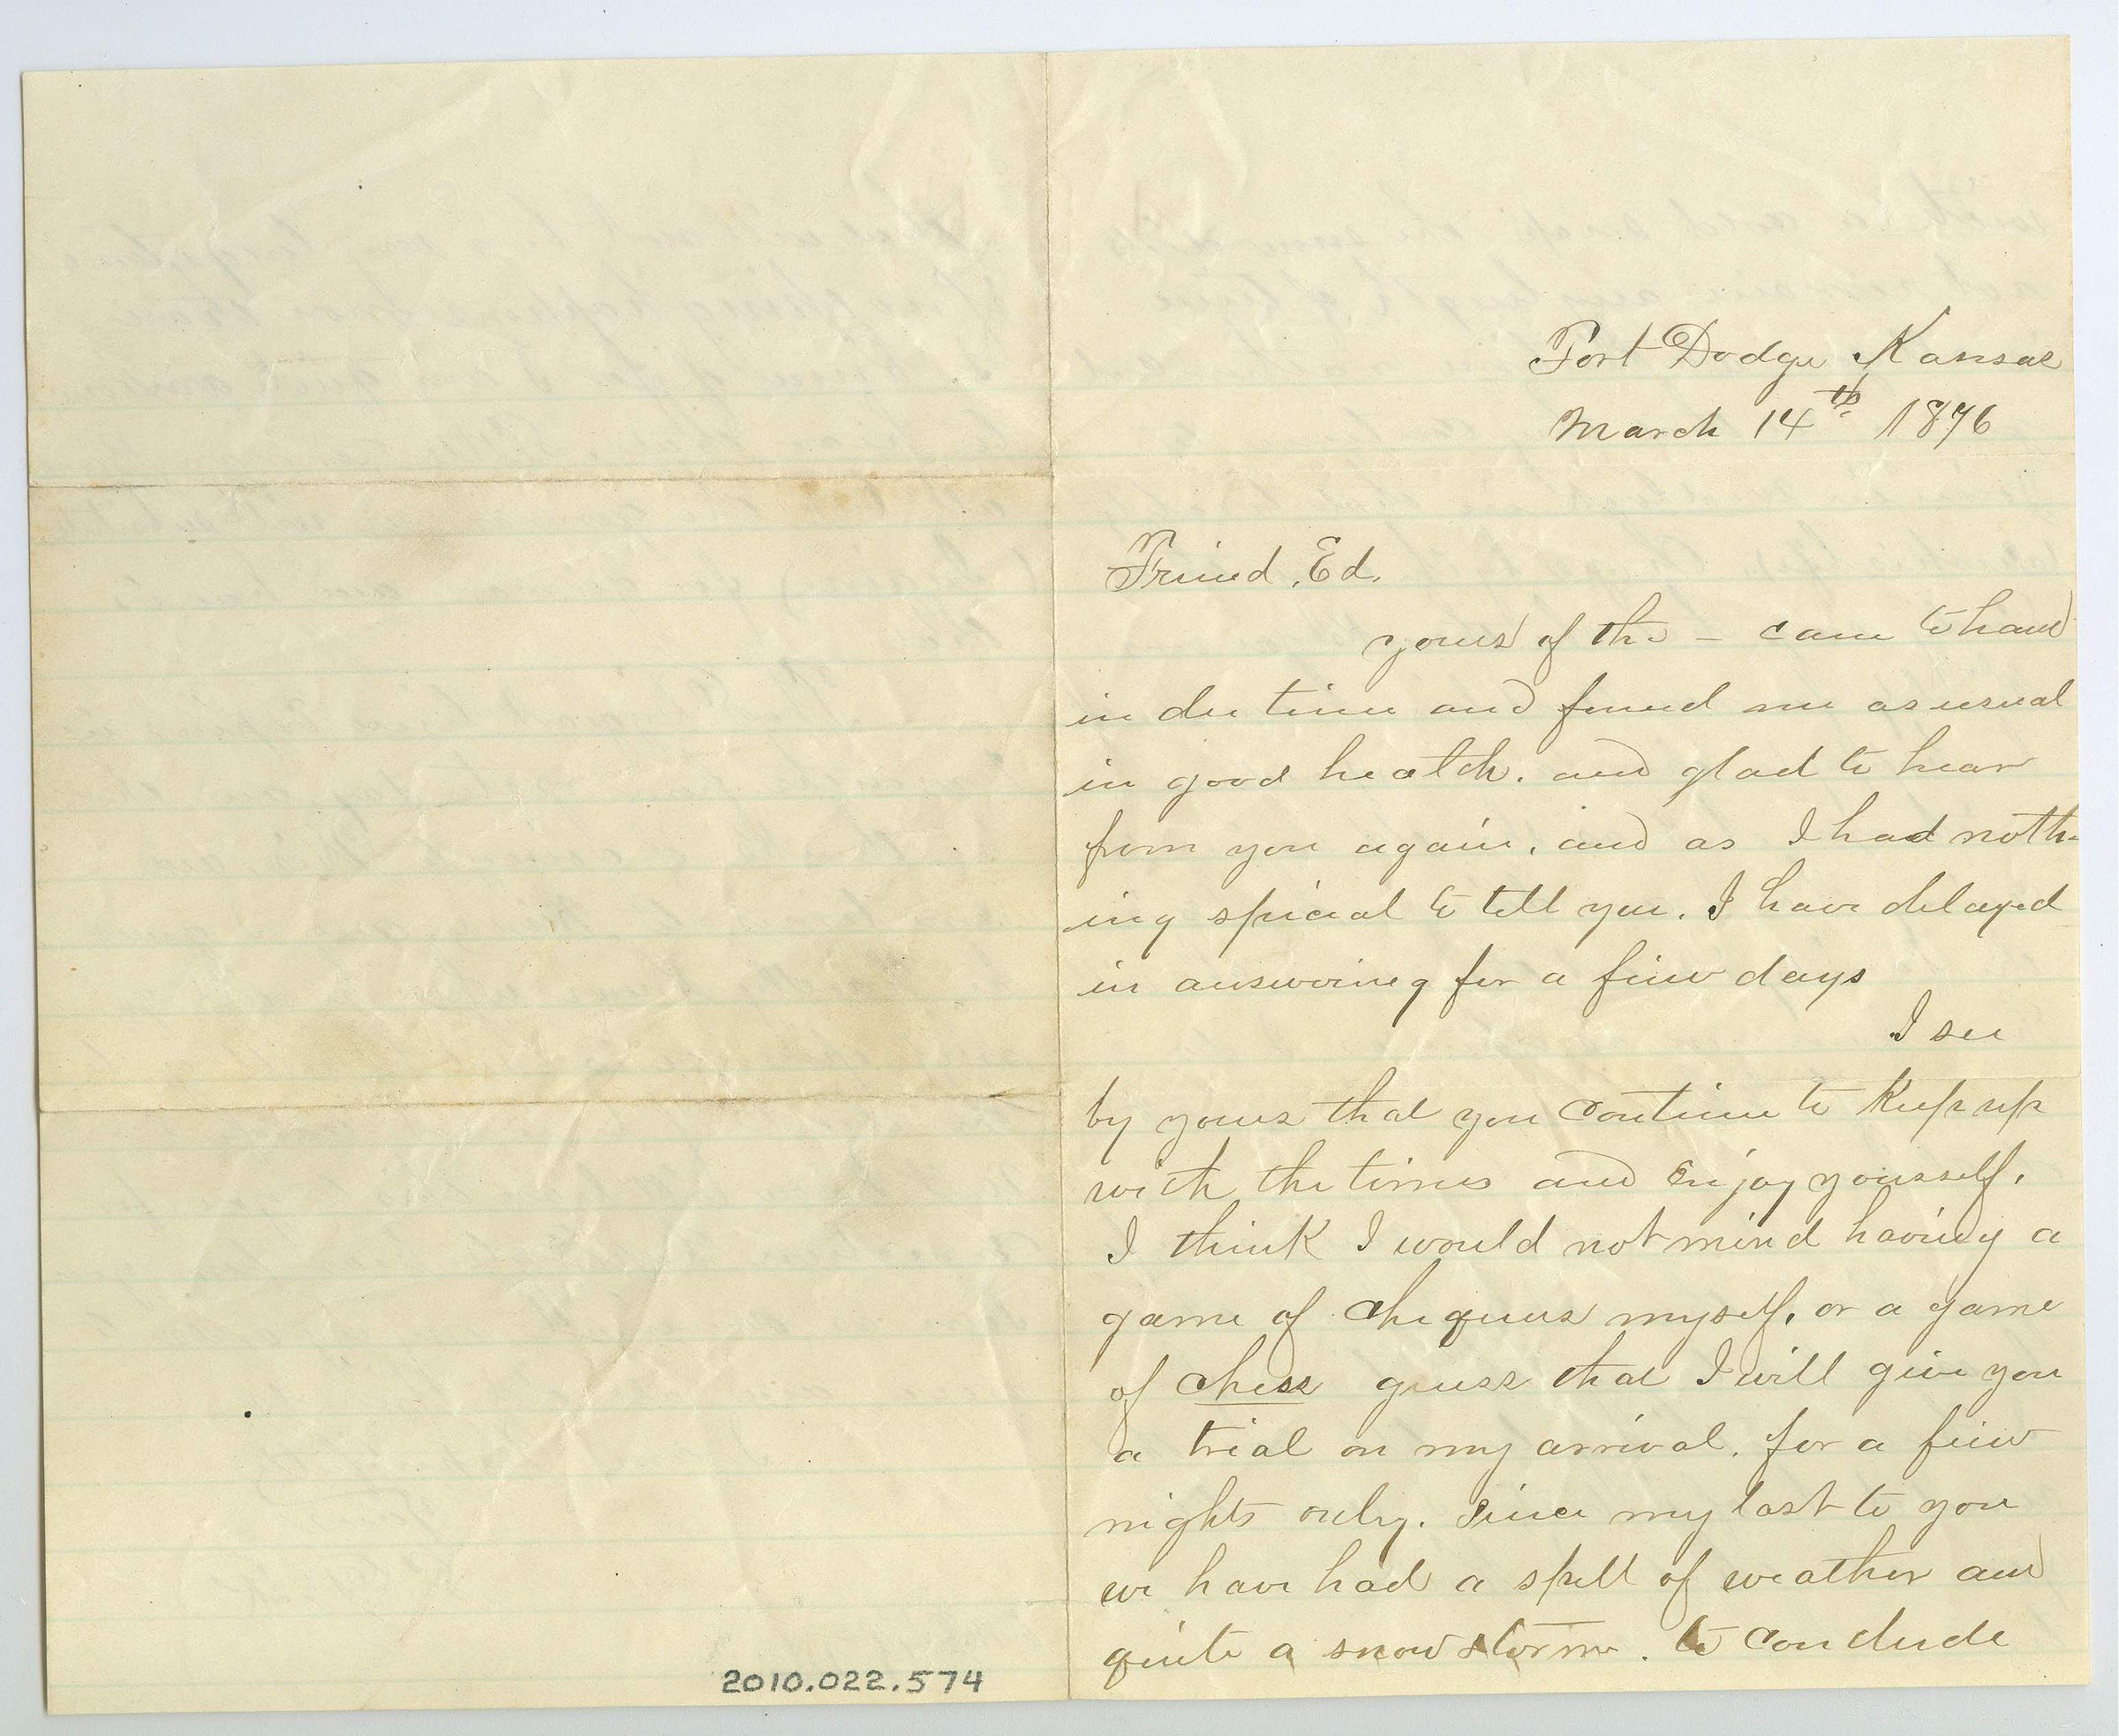 Fort Dodge Kansas
March 14th 1876
Friend, Ed,
yours of the – came to hand
in due time and found me as usual
in good health. and glad to hear
from you again, and as I had noth-
ing special to tell you. I have delayed
in answering for a few days
I see
by yours that you continue to Keep up
with the times and Enjoy yourself.
I think I would not mind having a
game of chequers myself, or a game
of chess guess that I will give you
a trial on my arrival. for a few
nights only. Since my last to you
we have had a spell of weather and
quite a snow storm. to conclude
2010.022.574